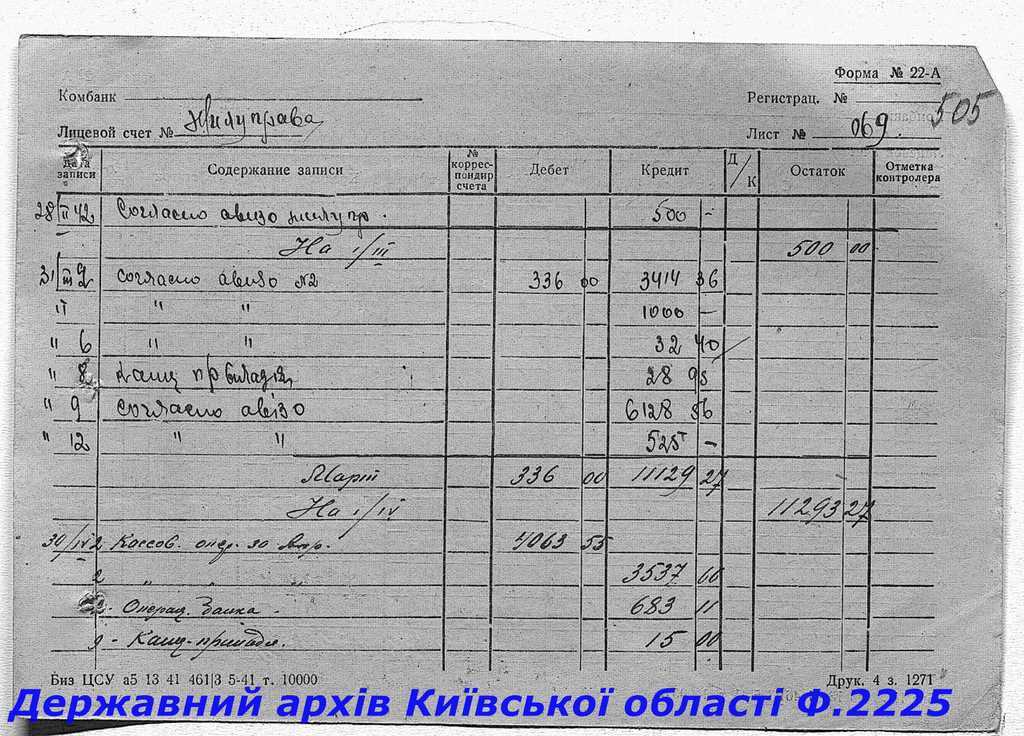 Форма № 22-А
Комбанк
Регистрац. № 505
Лицевой счет № Жилуправа
Лист № 069.
Дата записи | Содержание записи | № коррес-пондир счета | Дебет | Кредит | Д/К | Остаток | Отметка контролера
28/II 42 Согласно авизо жилупр. 500 –
На 1/III 500 00
31/III 2 Согласно авизо №2 336 00 3414 36
" " " 1000 –
" 6 " " 32 40
" 8 28 95
" 9 Согласно авізо 6128 56
" 12 " " 525 –
Март 336 00 11129 27
На 1/IV 11293 27
30/IV 2 Кассов. опер. за 4063 55
2 " " " 3537 66
2 - Операц. Банка - 683 11
9 - Канц. 15 00
Биз ЦСУ а5 13 41 461|3 5-41 т. 10000
Друк. 4 з. 1271
Державний архів Київської області Ф.2225